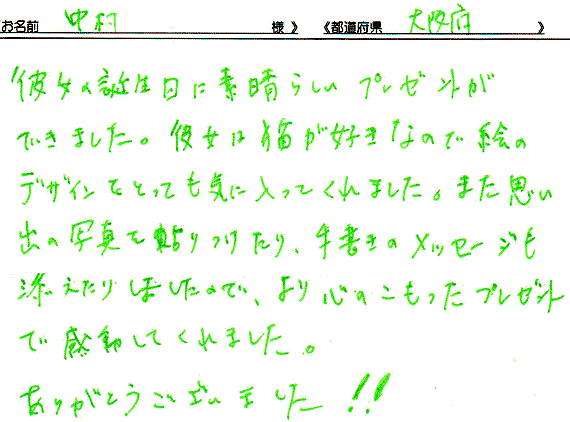 お名前 中村 様》 《都道府県 大阪府 》
彼女の誕生日に素晴らしい プレゼントが
できました。彼女は猫が好きなので絵の
デザインをとっても気に入ってくれました。また思い
出の写真を貼りつけたり、手書きのメッセージも
添えたりしましたので、より心のこもったプレゼント
で感動してくれました。
ありがとうございました!!